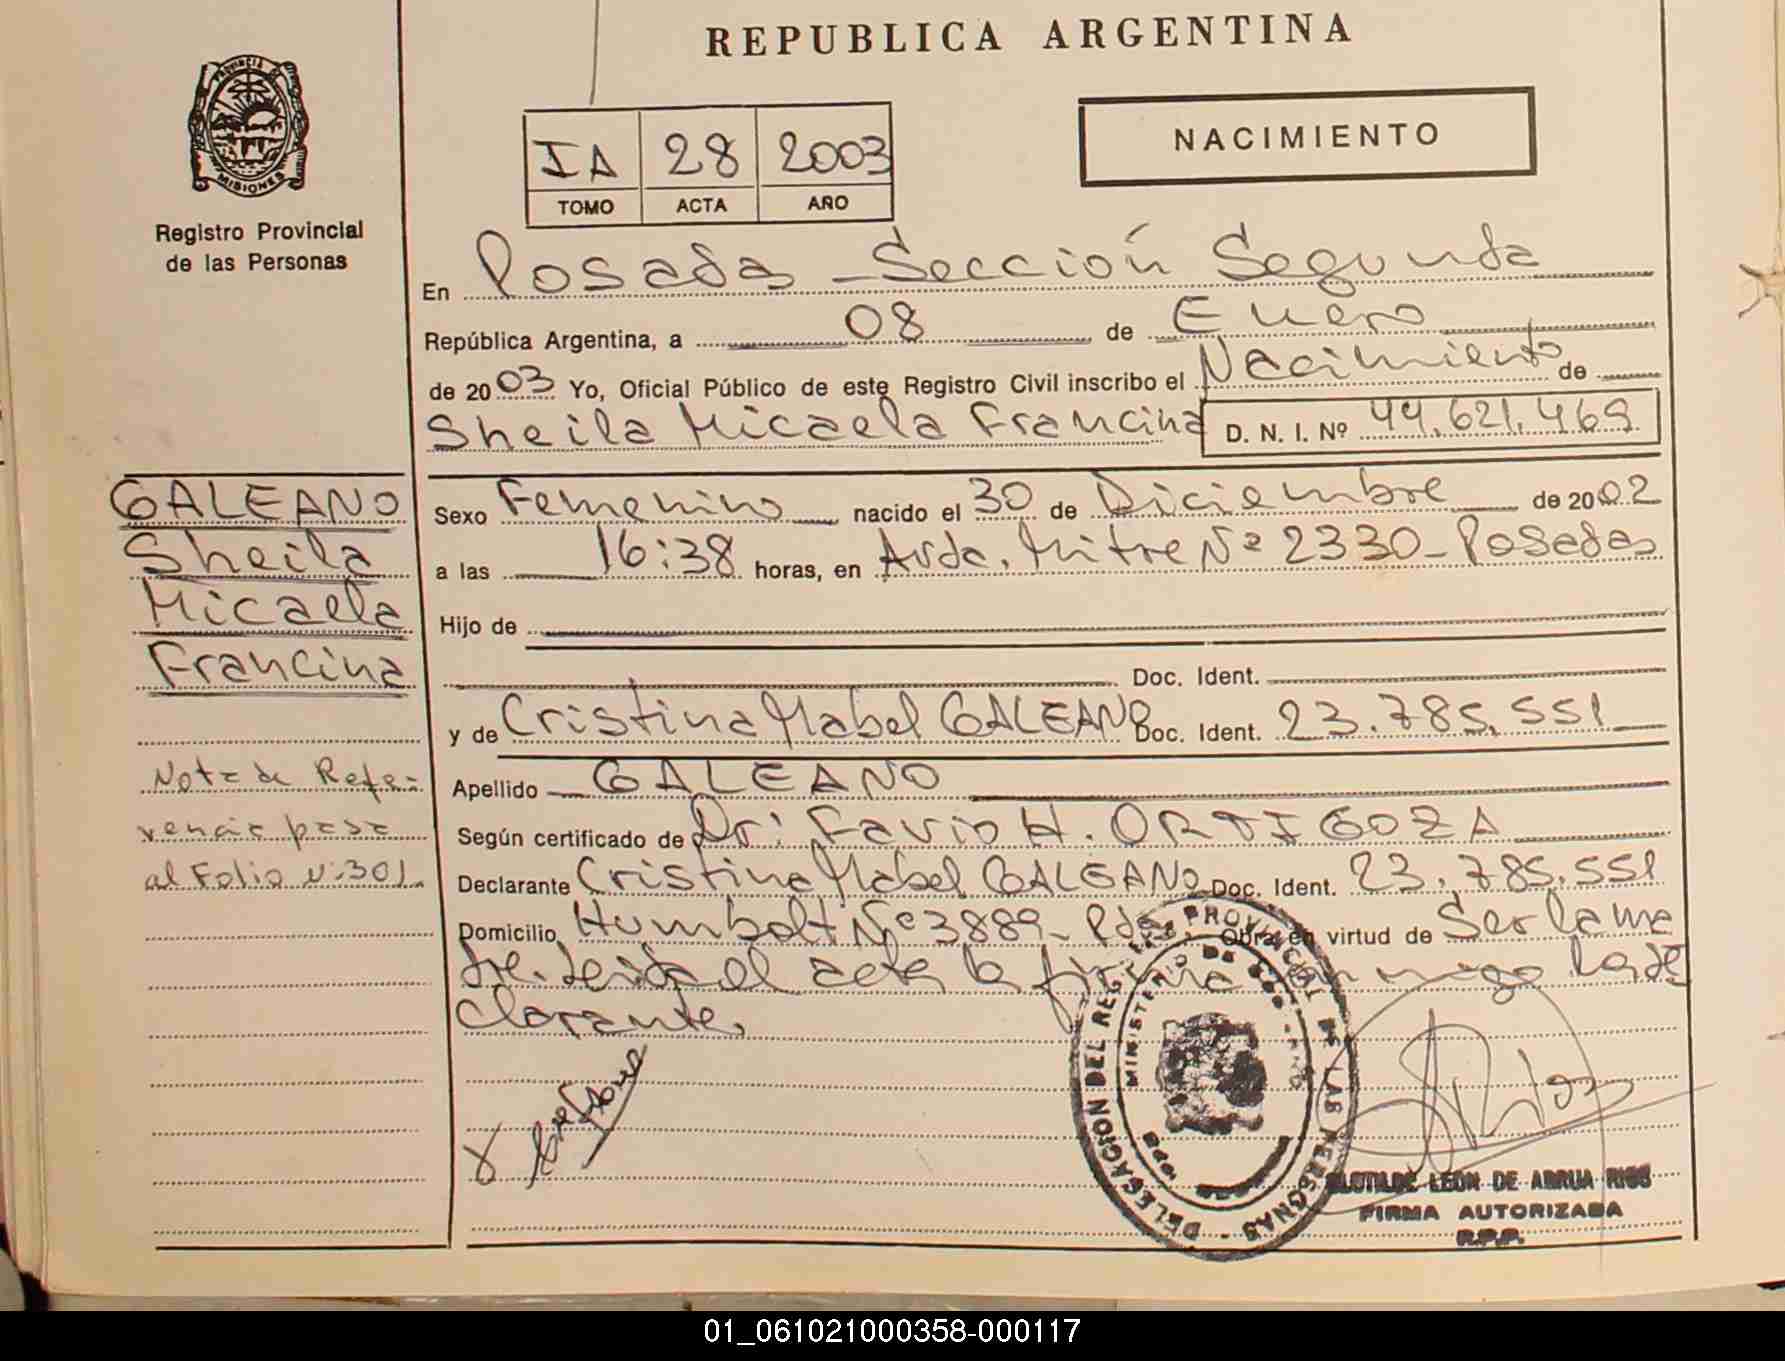 REPUBLICA ARGENTINA
PROVINCIA DE
MISIONES
Registro Provincial
de las Personas
IA 28 2003
TOMO ACTA AÑO
NACIMIENTO
En Posadas - Sección Segunda
República Argentina, a 08 de Enero
de 2003 Yo, Oficial Público de este Registro Civil inscribo el Nacimiento de
Sheila Micaela Francina D. N. I. Nº 44.621.469
GALEANO
Sheila
Micaela
Francina
Nota de Refe-
rencia pasa
al Folio Nº 301.
Sexo Femenino nacido el 30 de Diciembre de 2002
a las 16:38 horas, en Avda. Mitre Nº 2330 - Posadas
Hijo de
Doc. Ident.
y de Cristina Mabel GALEANO Doc. Ident. 23.785.551
Apellido GALEANO
Según certificado de Dr: Favio H. ORTIGOZA
Declarante Cristina Mabel GALEANO Doc. Ident. 23.785.551
Domicilio Humbolt Nº 3889 - Pdas. Obra en virtud de Ser la ma
dre. Leida el acta la firma conmigo la de
clarante.
DELEGACION DEL REGISTRO PROVINCIAL DE LAS PERSONAS
MINISTERIO DE
CLOTILDE LEON DE ABRUA RIOS
FIRMA AUTORIZADA
R.P.P.
01_061021000358-000117